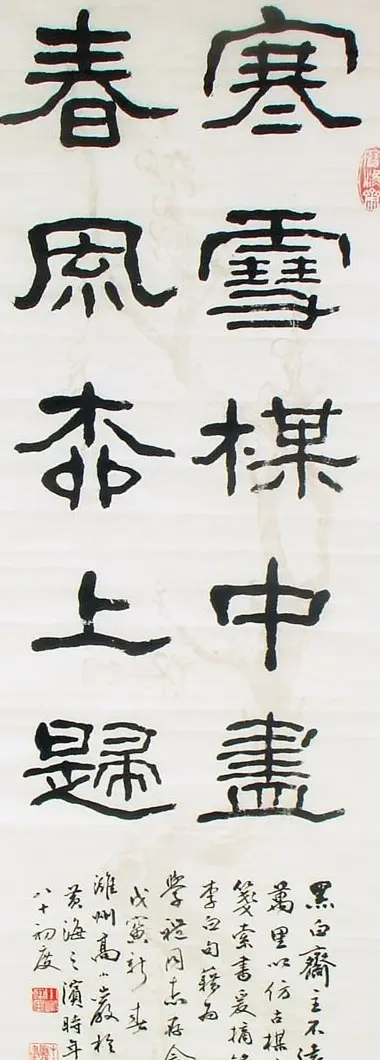 寒雪楳中盡
春風桺上歸
黑白齋主不遠
萬里以仿古楳
箋索書爰摘
李白句藉為
學禮同志存念
戊寅新春
濰州高小巖於
黃海之濱時年
八十初度